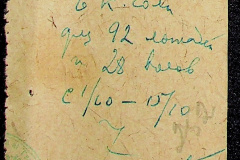 6 к. соли
для 92 лошадей
и 28 волов
с 1/10 – 15/10